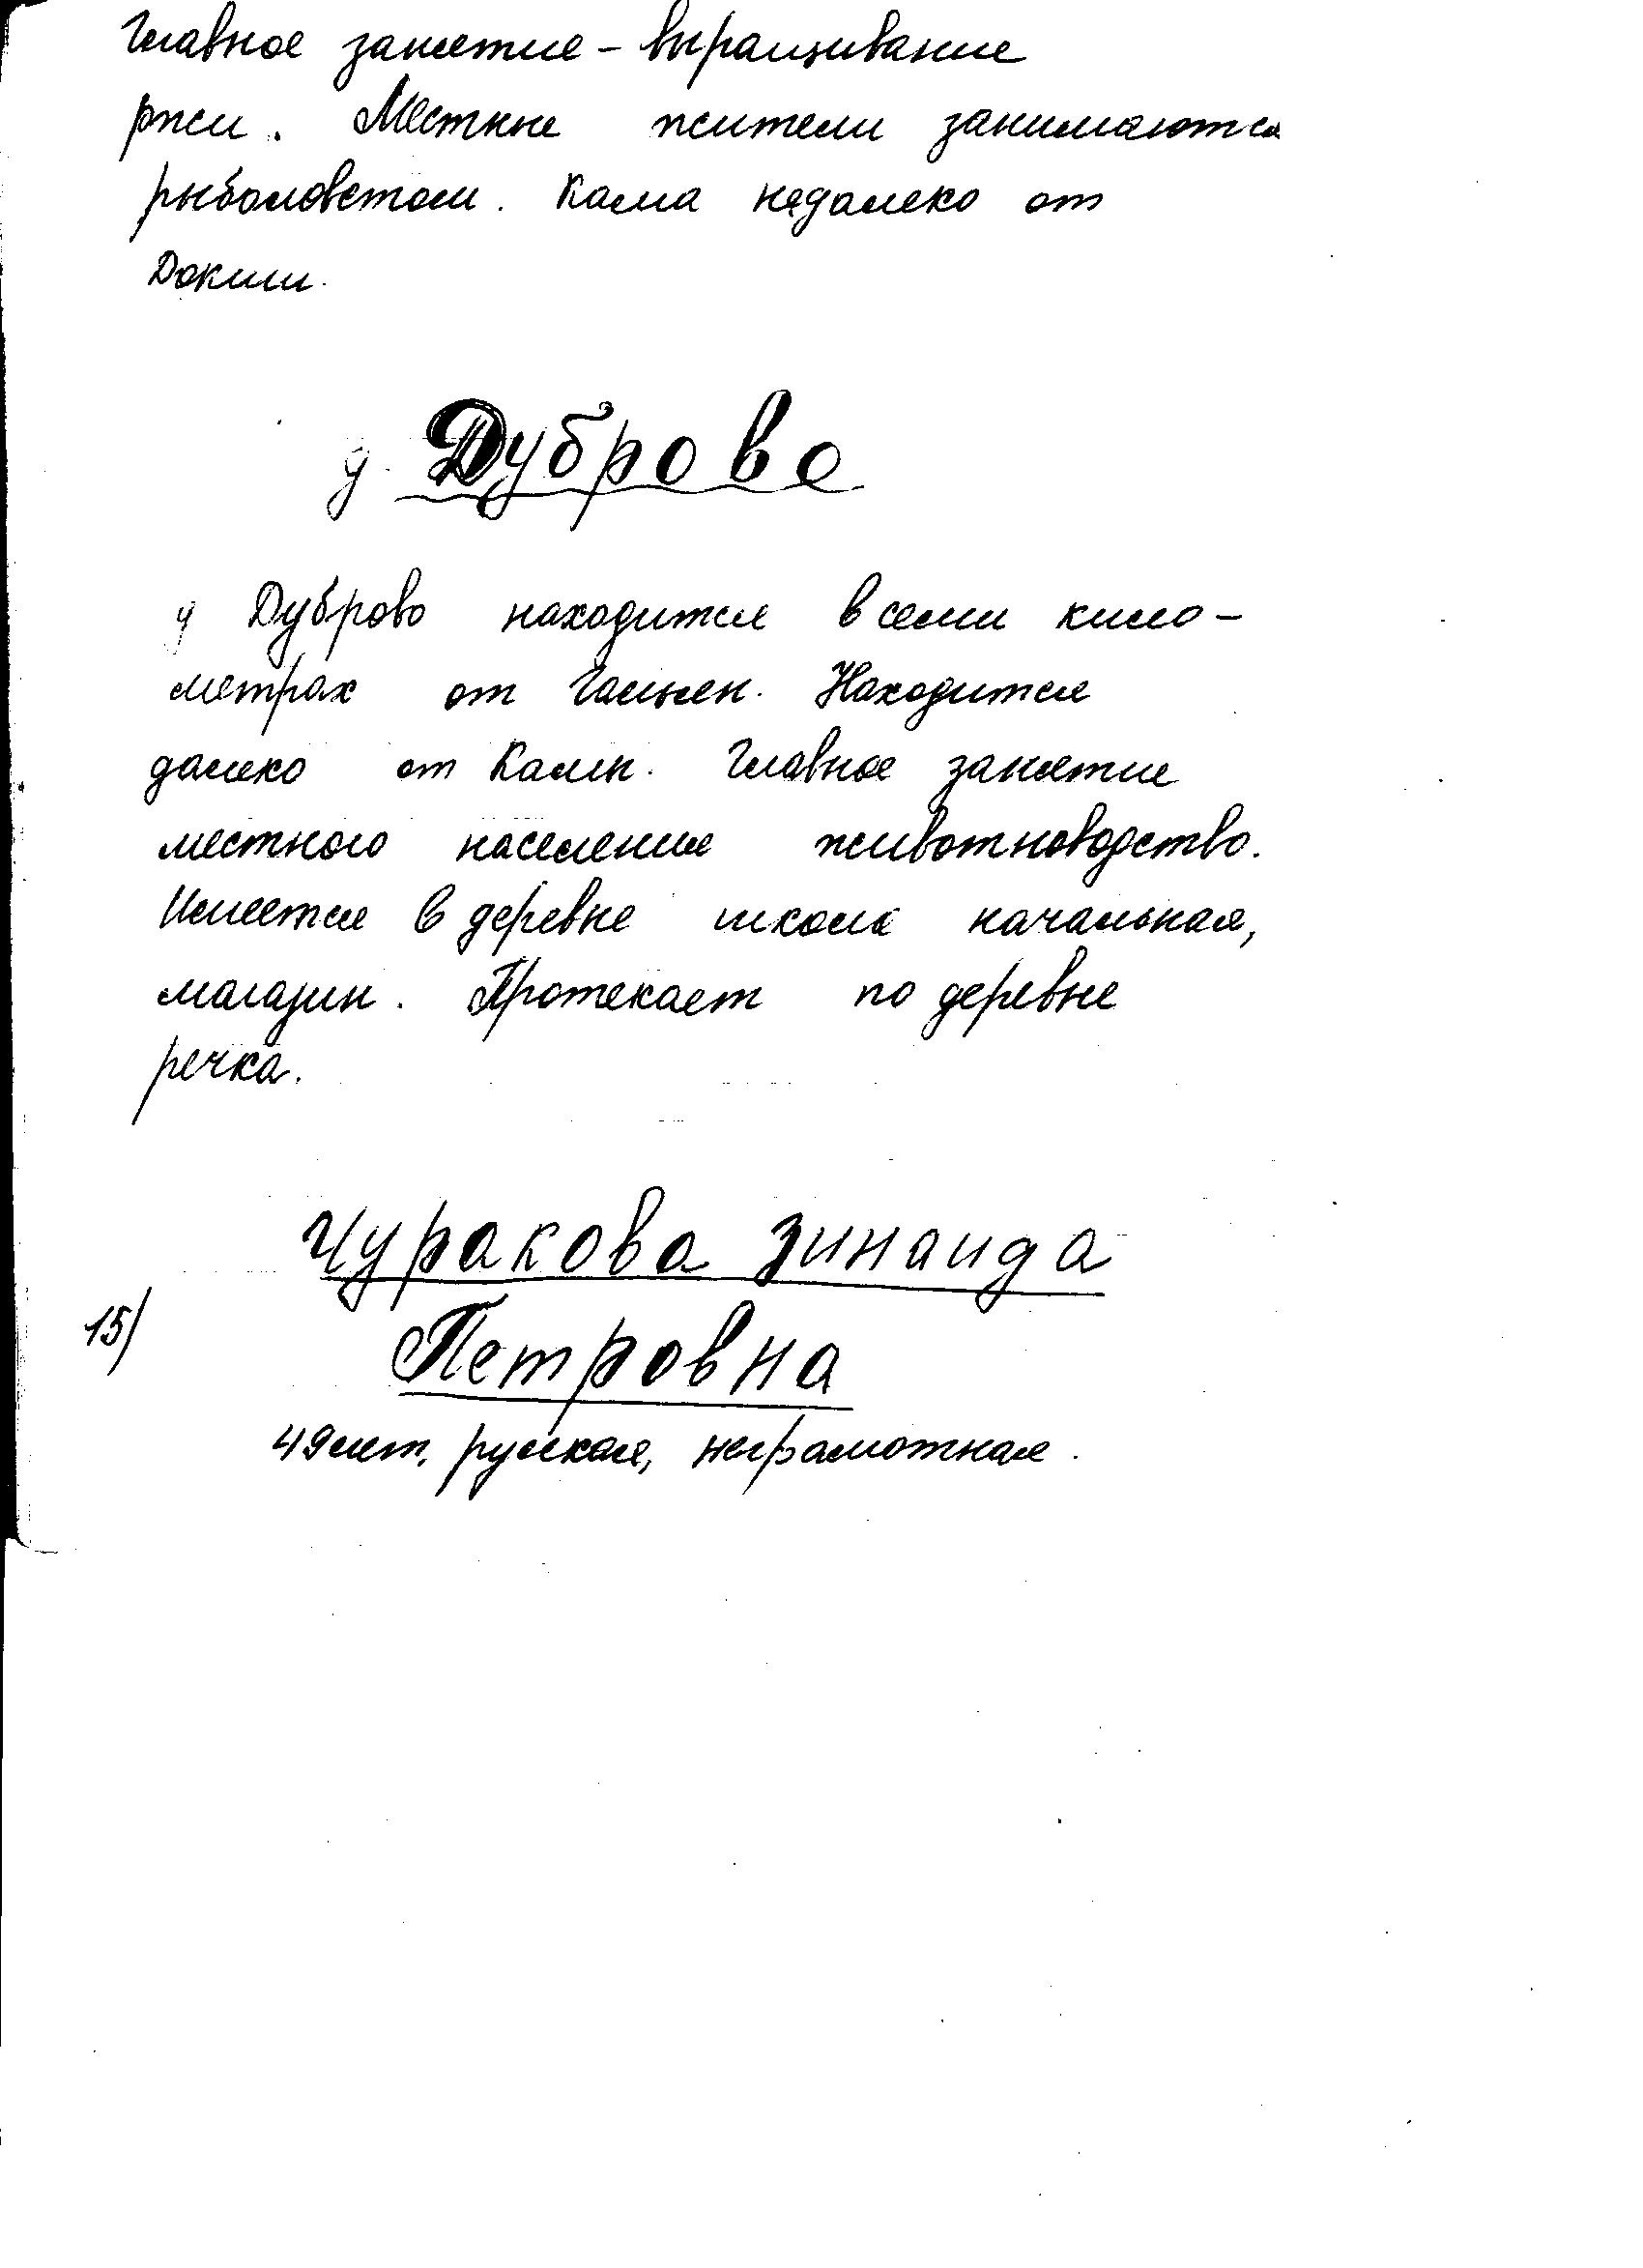 Главное занятие – выращивание
ржи. Местные жители занимаются
рыболовством. Кама недалеко от
Докши.
д. Дуброво
д Дуброво находится в семи кило-
метрах от Гольян. Находится
далеко от Камы. Главное занятие
местного населения животноводство.
Имеется в деревне школа начальная,
магазин. Протекает по деревне
речка.
Чуракова Зинаида
15)
Петровна
49 лет, русская, неграмотная.